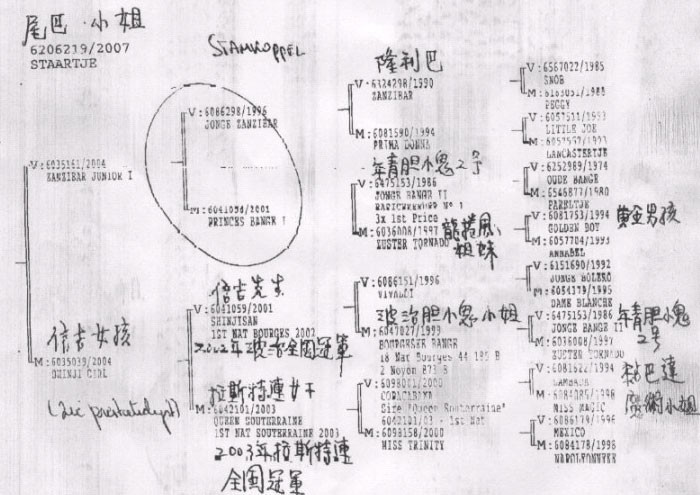 尾巴·小姐
6206219/2007
STAARTJE
V:6035161/2004
ZANZIBAR JUNIOR I
信吉女孩
M:6035039/2004
SHINJI GIRL
STAMKOPPEL
V:6086298/1996
JONGE ZANZIBAR
M:6041098/2001
PRINCES BANGE I
信吉先生
V:6041059/2001
SHINJISAN
1ST NAT BOURGES 2002
2002年波治全國冠軍
拉斯特連女王
M:6042101/2003
QUEEN SOUTERRAINE
1ST NAT SOUTERRAINE 2003
2003年拉斯特連
全國冠軍
隆利巴
V:6324298/1990
ZANZIBAR
M:6081590/1994
PRIMA DONNA
年青胆小鬼2号
V:6475153/1986
JONGE BANGE II
3x 1st Price
M:6036008/1997
ZUSTER TORNADO
龍捲風
姐妹
V:6086151/1996
VIVALDI
波治胆小鬼小姐
M:6047027/1999
BOURGESE BANGE
18 Nat Bourges 44 180 B
2 Noyon 873 B
V:6098001/2000
Sire "Queen Souterraine"
6042101/03 - 1st Nat
M:6098158/2000
MISS TRINITY
V:6567022/1985
SNOB
PEGGY
V:6057511/1993
LITTLE JOE
LANCASTERTJE
V:6252989/1974
OUDE BANGE
M:6546877/1980
PARELTJE
V:6081753/1994
GOLDEN BOY
黄金男孩
M:6057704/1993
ANNABEL
V:6151690/1992
JONGE BOLERO
M:6054179/1995
DAME BLANCHE
V:6475153/1986
JONGE BANGE II
年青胆小鬼
2号
M:6036008/1997
ZUSTER TORNADO
V:6081622/1994
LAMBADA
M:6084085/1996
MISS MAGIC
魔術小姐
V:6086179/1996
MEXICO
M:6084178/1996